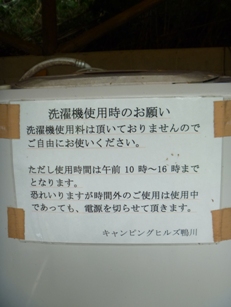 洗濯機使用時のお願い
洗濯機使用料は頂いておりませんので
ご自由にお使いください。
ただし使用時間は午前 10 時～16 時まで
となります。
恐れいりますが時間外のご使用は使用中
であっても、電源を切らせて頂きます。
キャンピングヒルズ鴨川